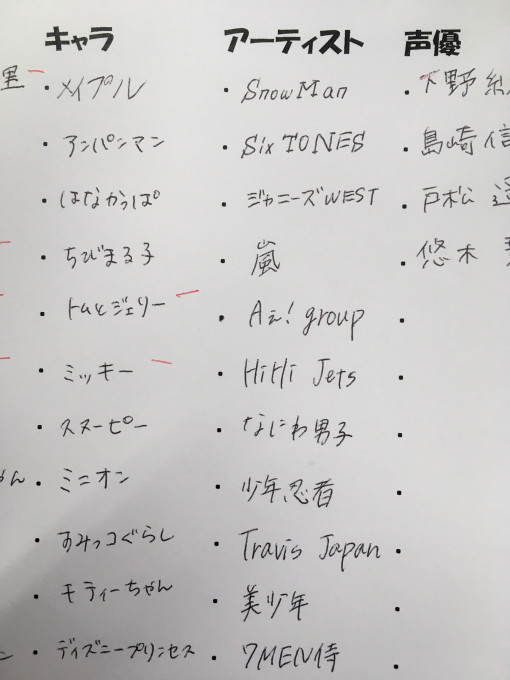 キャラ
メイプル
アンパンマン
はなかっぱ
ちびまる子
トムとジェリー
ミッキー
スヌーピー
ミニオン
すみっコぐらし
モティーちゃん
ディズニープリンセス
アーティスト
Snow Man
SixTONES
ジャニーズWEST
嵐
Aぇ! group
HiHi Jets
なにわ男子
少年忍者
Travis Japan
美少年
7MEN侍
声優
下野
島崎信
戸松
悠木